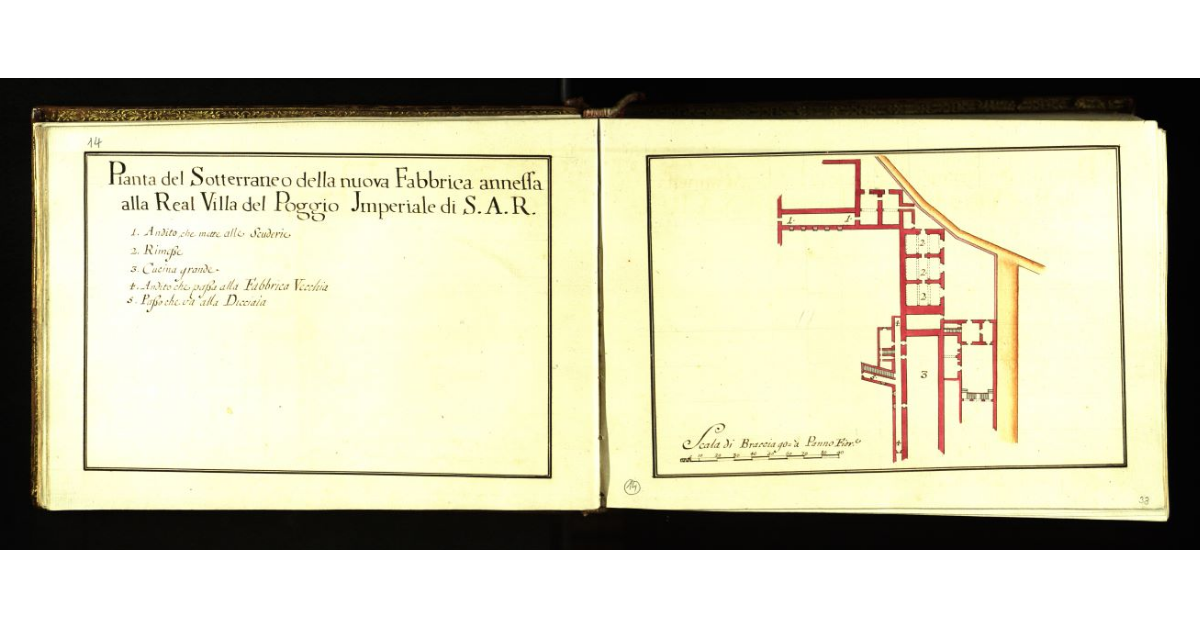 14
Pianta del Sotterraneo della nuova Fabbrica anneſsa
alla Real Villa del Poggio Jmperiale di S.A.R.
1. Andito che mette alle Scuderie
2. Rimeſse
3. Cucina grande
4. Andito che paſsa alla Fabbrica Vecchia
5. Paſso che va alla Dicciaia
1. 1.
2
2
2
4
3
4
Scala di Braccia 90 à Panno Fior.
14
33